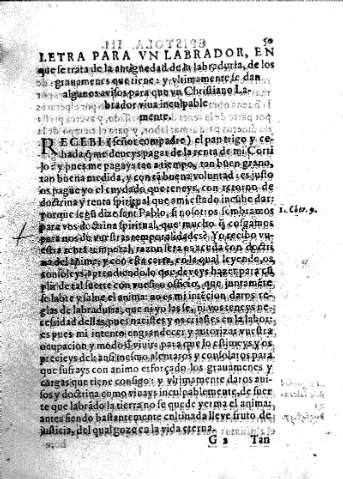 50
LETRA PARA VN LABRADOR, EN
que se trata de la antiguedad de la labraduria, de los
grauamenes que tiene: y vltimamente se dan
algunos auisos para que vn Christiano La-
brador viua inculpable
mente.
RECEBI (señor compadre) el pan trigo y ce-
bada, q̃ me deueys pagar de la renta de mi Corti
jo: y pues me pagays a tiempo, tan buen grano,
tan buena medida, y con tã buena voluntad: es justo
os pague yo el cuydado que teneys, con retorno de
doctrina y renta spiritual que a mi estado incũbe dar:
porque segũ dize sant Pablo, si nosotros sembramos
para vos doctrina spiritual, que mucho q̃ cojamos
para nos de vuestras temporalidades? Yo recibo vu-
estra renta temporal, razon
del anima: y con esta carta, en la qual leyendo, os
consoleys, aprendiendo lo que deueys hazer para cũ
plir de tal suerte con vuestro officio, que juntamẽte
se labre y salue el anima: no es mi intẽcion, daros re-
glas de labraduria, que ni yo las se, ni vos teneys ne-
cesidad dellas, pues nacistes y os criastes en la labor:
es pues mi intento engrandecer y autorizar vuestra
ocupacion y modo d̃ viuir, para que lo estimeys y os
precieys del: assi mesmo alentaros y consolaros para
que sufrays con animo esforçado los grauamenes y
cargas que tiene consigo: y vltimamente daros aui-
sos y doctrina como viuays inculpablemente, de suer
te que labrãdo la tierra no se quede yerma el anima:
antes siendo bastantemente cultiuada lleue fruto de
justicia, del qual goze en la vida eterna.
1. Cor. 9.
G 2
Tan